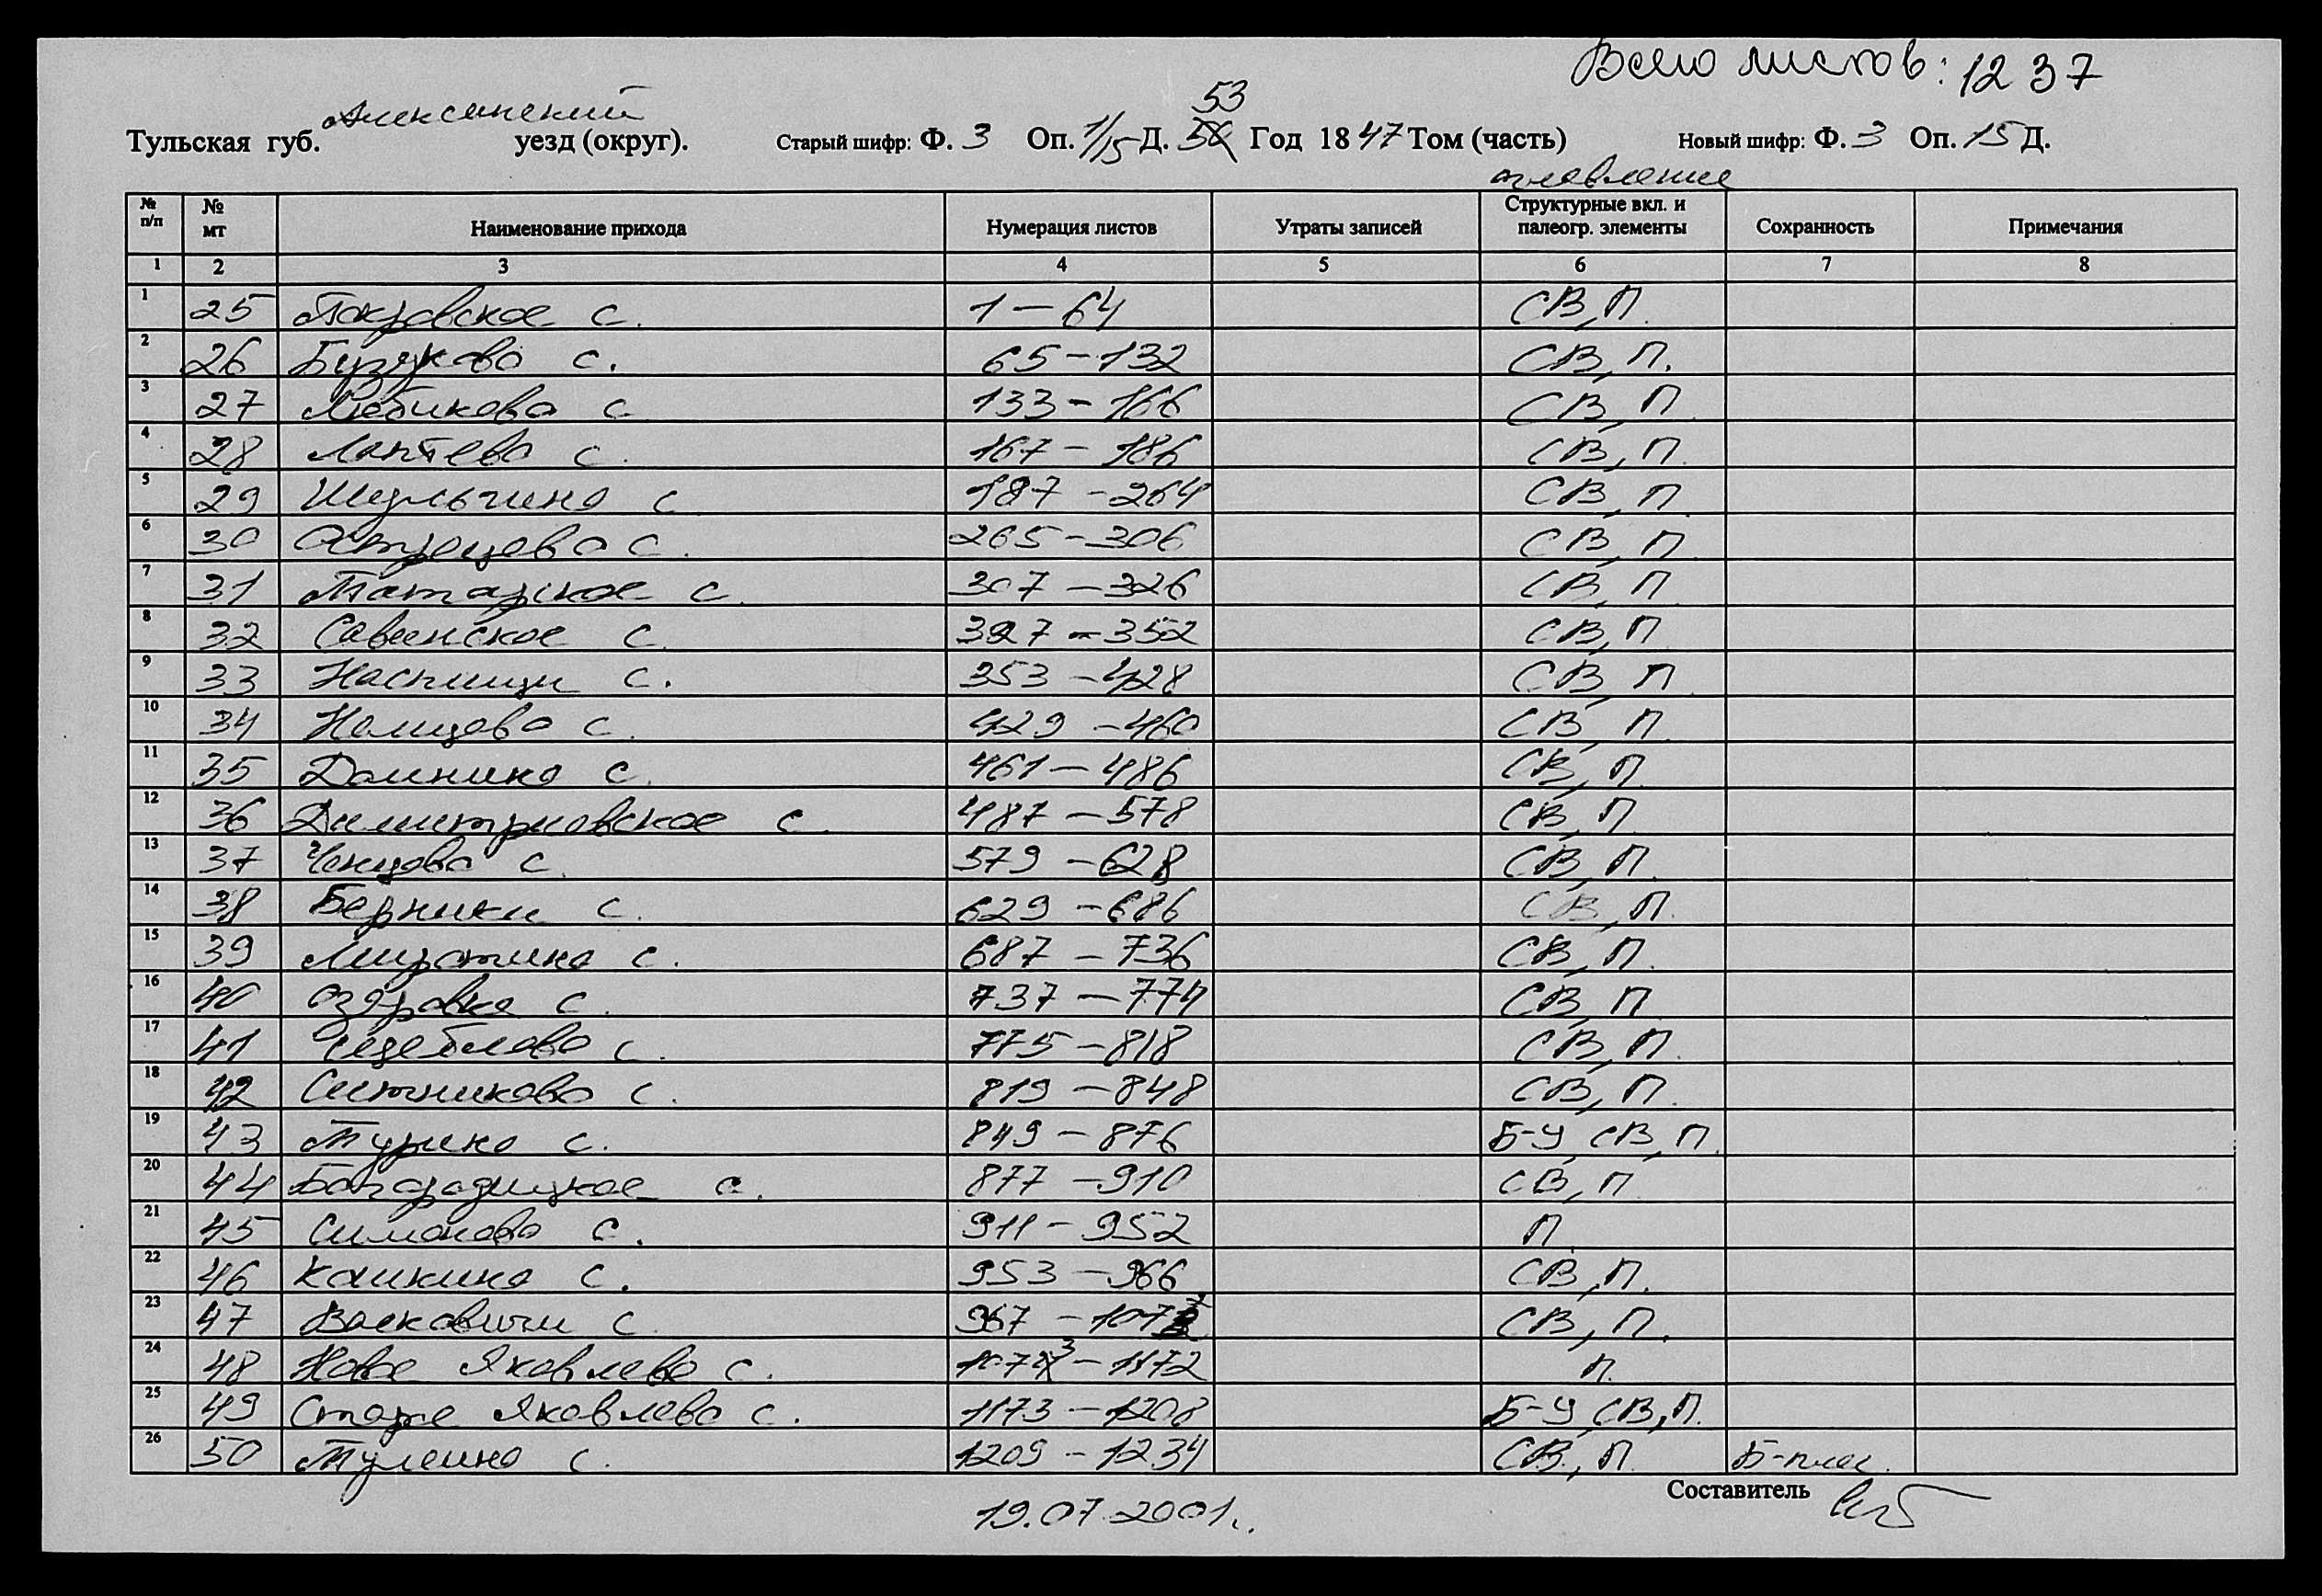 Всего листов: 1237
Алексинский
53
Тульская губ. уезд (округ). Старый шифр: Ф. 3 Оп. 1/15 Д. Год 1847 Том (часть) Новый шифр: Ф. 3 Оп. 15 Д.
оглавление
№ п/п № мт Наименование прихода Нумерация листов Утраты записей Структурные вкл. и палеогр. элементы Сохранность Примечания
1 2 3 4 5 6 7 8
1 25 Покровское с. 1 – 64 СВ, П.
2 26 Бузуково с. 65 – 132 СВ, П.
3 27 Любиково с 133 – 166 СВ, П.
4 28 Лаптево с. 167 – 186 СВ, П.
5 29 Шульгино с 187 – 264 СВ, П.
6 30 с. 265 – 306 СВ, П
7 31 Татарское с. 307 – 326 СВ, П.
8 32 Савинское с. 327 – 352 СВ, П
9 33 Наспищи с. 353 – 428 СВ, П.
10 34 Немцово с. 429 – 460 СВ, П.
11 35 Домнино с. 461 – 486 СВ, П.
12 36 Димитриевское с. 487 – 578 СВ, П.
13 37 Ченцово с. 579 – 628 СВ, П.
14 38 Берники с. 629 – 686 СВ, П.
15 39 с. 687 – 736 СВ, П.
16 40 Озеровка с. 737 – 774 СВ, П
17 41 с. 775 – 818 СВ, П.
18 42 Ситниково с. 819 – 848 СВ, П.
19 43 Турино с. 849 – 876 Б-У, СВ, П.
20 44 Богородицкое с. 877 – 910 СВ, П
21 45 Симоново с. 911 – 952 П.
22 46 Кашкино с. 953 – 966 СВ, П.
23 47 Васковичи с. 967 – 1072 СВ, П.
24 48 Новое Яковлево с. 1073 – 1172 П.
25 49 Старое Яковлево с. 1173 – 1208 Б-У, СВ, П.
26 50 Тулеино с. 1209 – 1234 СВ, П. Б-плес.
Составитель
19.07.2001г.